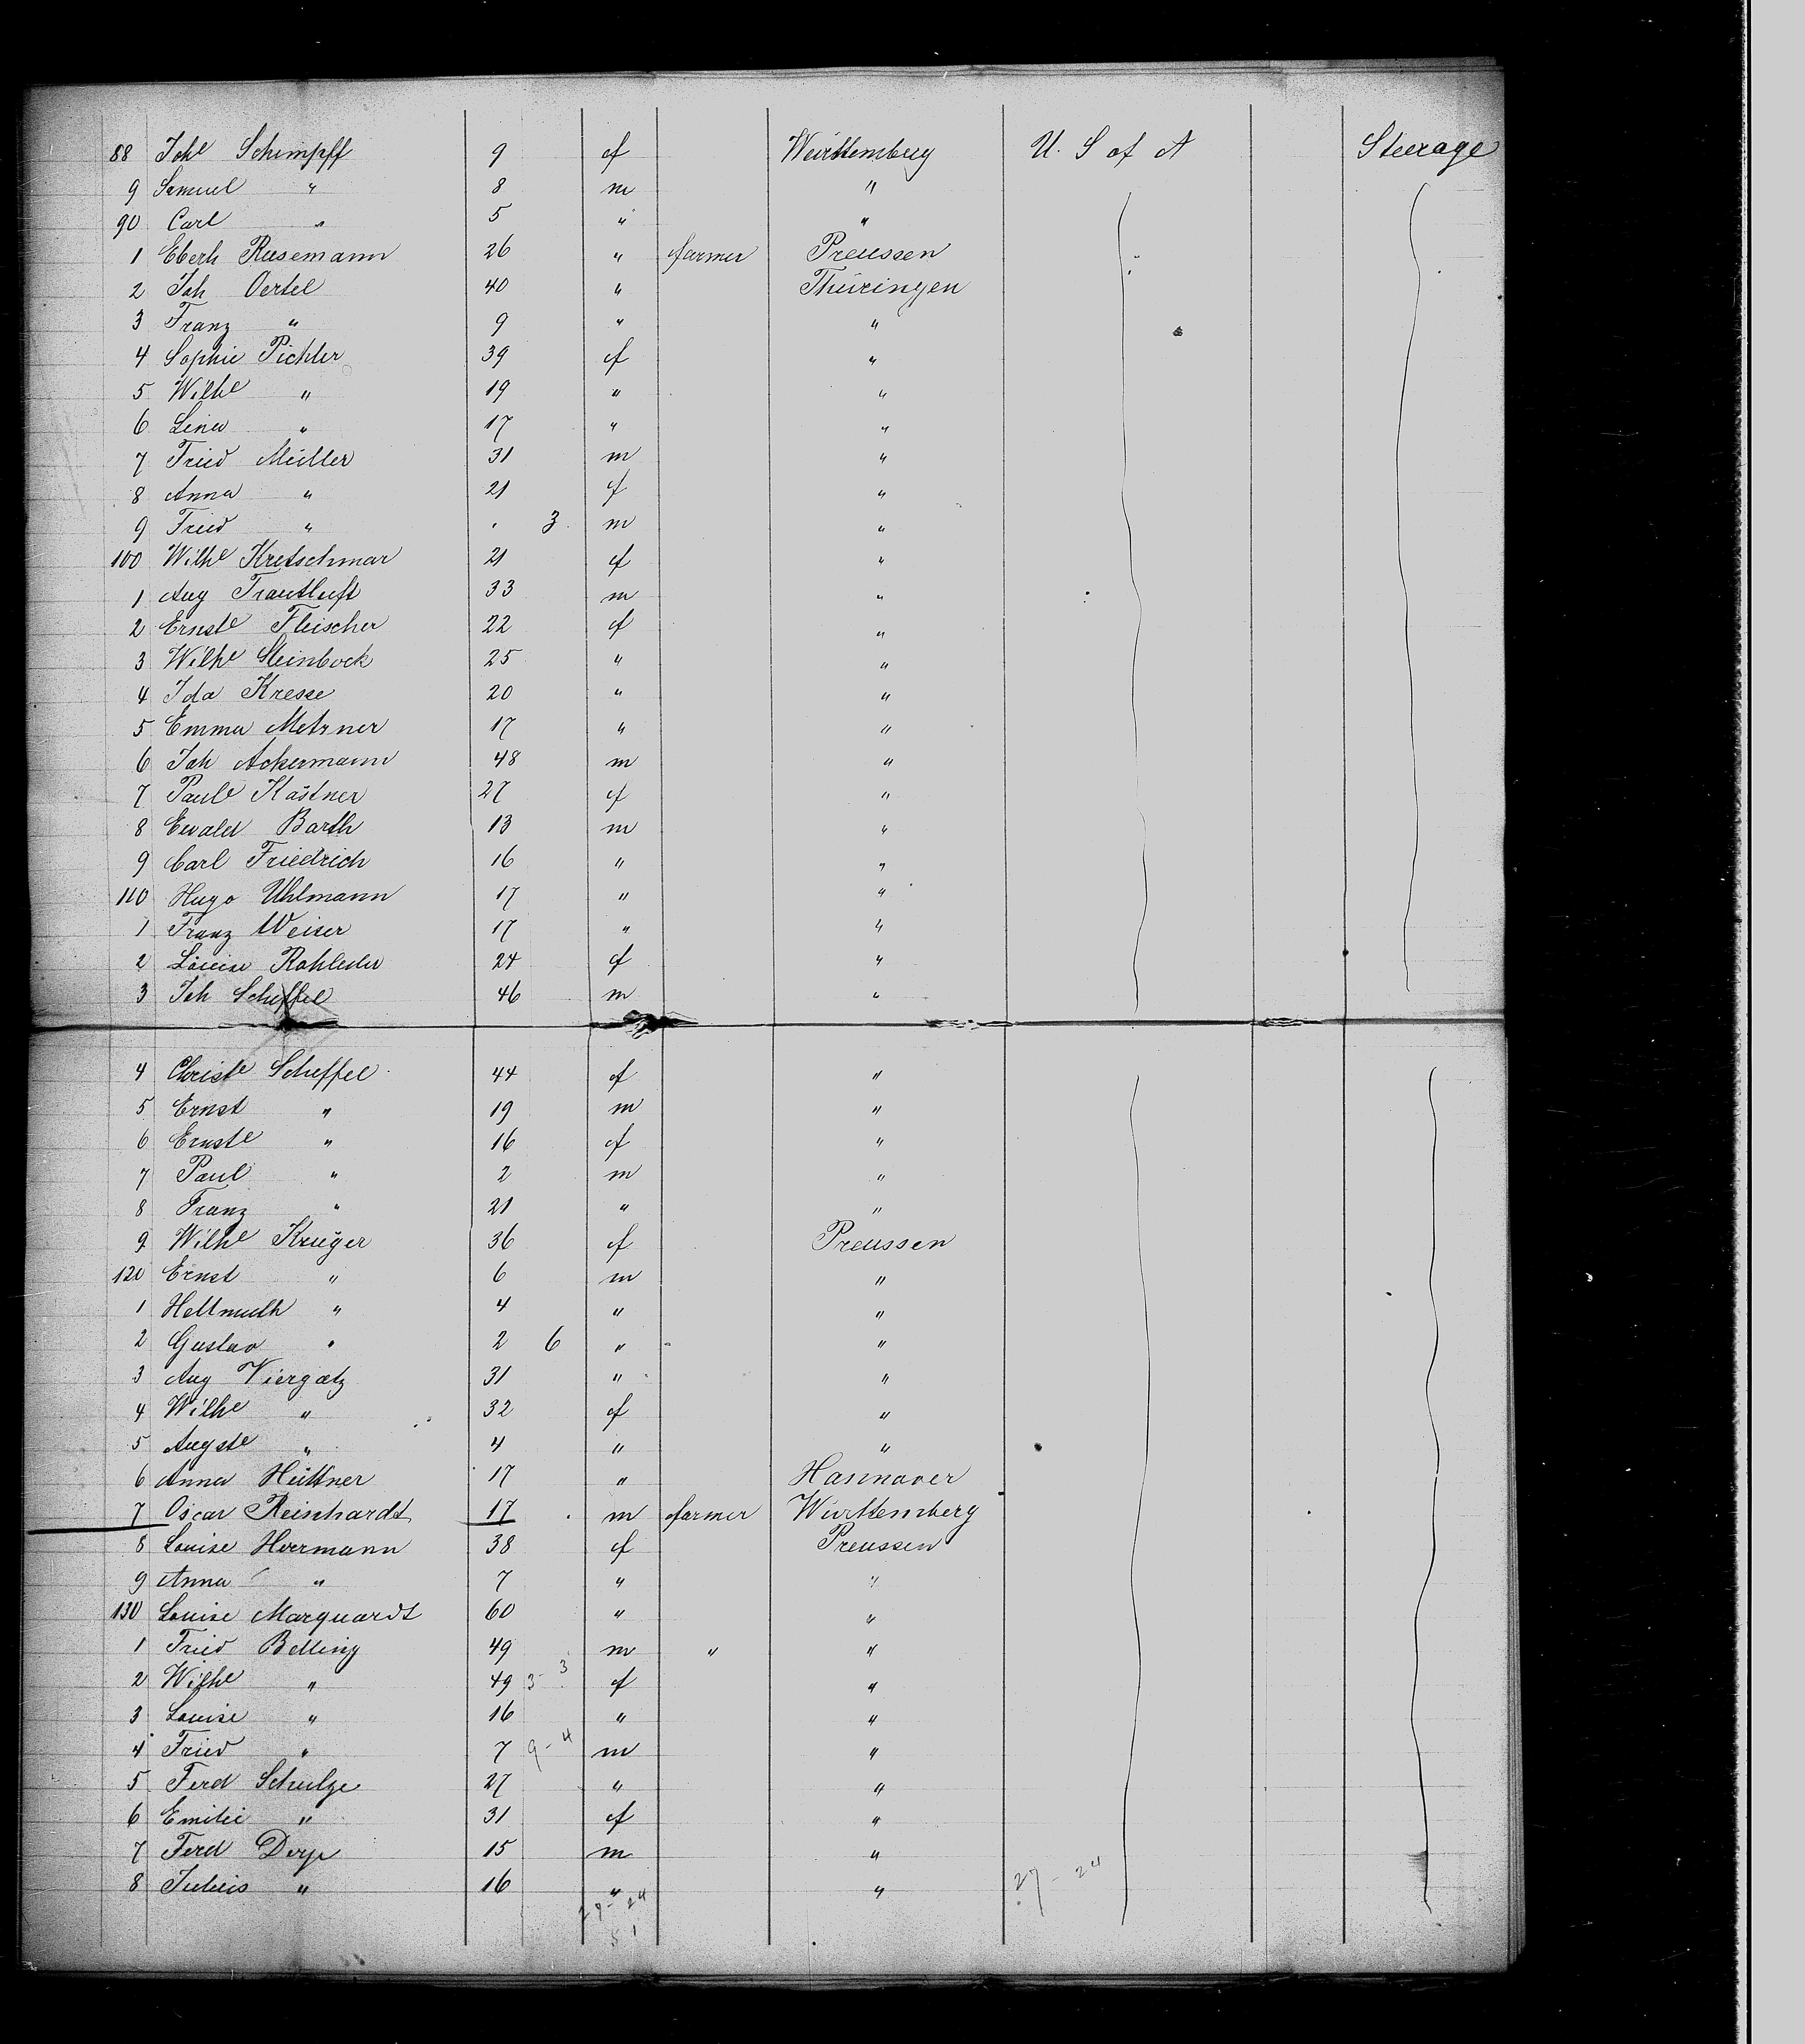 88 Johe Schimpff 9 f Württemberg U. S of A Steerage
9 Samuel " 8 m "
90 Carl " 5 " "
1 Eberh Rusemann 26 " farmer Preussen
2 Joh Oertel 40 " Thüringen
3 Franz " 9 " "
4 Sophie Pichler 39 f "
5 Wilhe " 19 " "
6 Lina " 17 " "
7 Fried Müller 31 m "
8 Anna " 21 f "
9 Fried " . 3 m "
100 Wilhe Kretschmar 21 f "
1 Aug Trautluft 33 m "
2 Ernste Fleischer 22 f "
3 Wilhe Steinbock 25 " "
4 Ida Kresse 20 " "
5 Emma Metzner 17 " "
6 Joh Ackermann 48 m "
7 Paule Kästner 27 f "
8 Ewald Barth 13 m "
9 Carl Friedrich 16 " "
110 Hugo Uhlmann 17 " "
1 Franz Weiser 17 " "
2 Louise Rohleder 24 f "
3 Joh Scheffel 46 m "
4 Christe Scheffel 44 f "
5 Ernst " 19 m "
6 Ernste " 16 f "
7 Paul " 2 m "
8 Franz " 21 " "
9 Wilhe Krüger 36 f Preussen
120 Ernst " 6 m "
1 Hellmuth " 4 " "
2 Gustav " 2 6 " "
3 Aug Viergatz 31 " "
4 Wilhe " 32 f "
5 Augste " 4 " "
6 Anna Hüttner 17 " Hannover
7 Oscar Reinhardt 17 m farmer Württemberg
8 Louise Hoermann 38 f Preussen
9 Anna " 7 " "
130 Louise Marquardt 60 " "
1 Fried Belling 49 m " "
2 Wilhe " 49 3- 3 f "
3 Louise " 16 " "
4 Fried " 7 9-4 m "
5 Ferd Schulze 27 " "
6 Emilie " 31 f "
7 Ferd Derp 15 m "
8 Julius " 16 " " 27-24
27-24
51